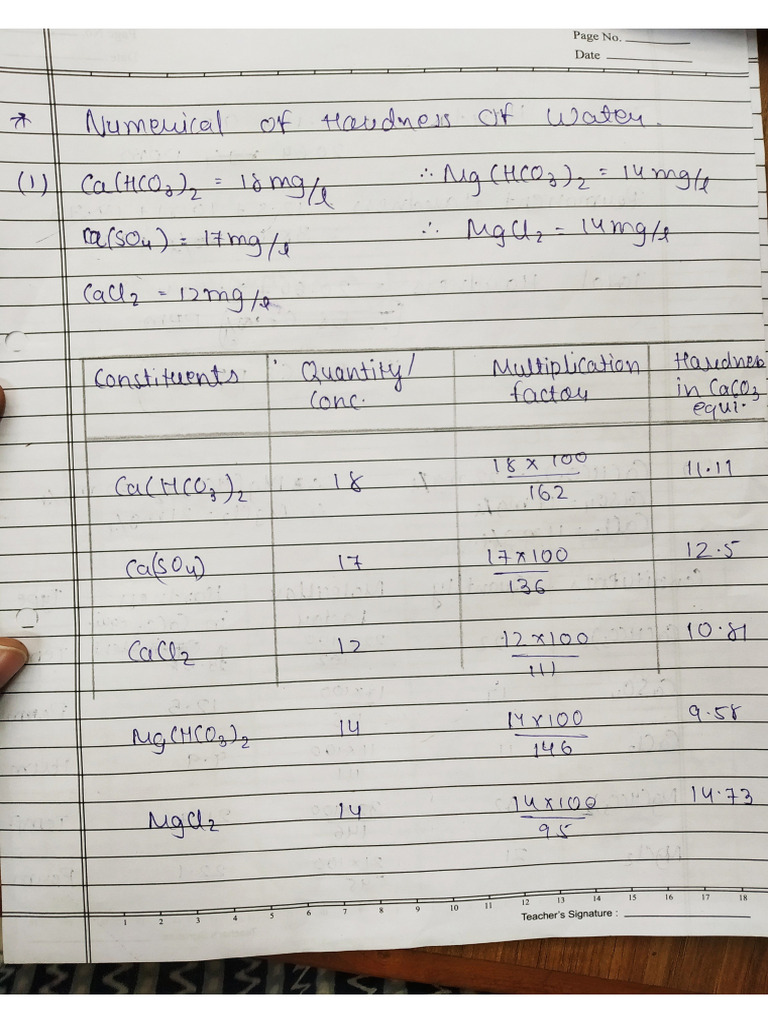 Page No.
Date
* Numerical of Hardness of Water.
(1) Ca(HCO3)2 = 18mg/l ∴ Mg(HCO3)2 = 14mg/l
Ca(SO4) = 17mg/l ∴ MgCl2 = 14mg/l
CaCl2 = 12mg/l
Constituents Quantity/ Multiplication Hardness
Conc. factor in CaCO3
equi.
Ca(HCO3)2 18 18 × 100 / 162 11.11
Ca(SO4) 17 17×100 / 136 12.5
CaCl2 12 12×100 / 111 10.81
Mg(HCO3)2 14 14×100 / 146 9.58
MgCl2 14 14×100 / 95 14.73
1 2 3 4 5 6 7 8 9 10 11 12 13 14 15 16 17 18
Teacher's Signature :